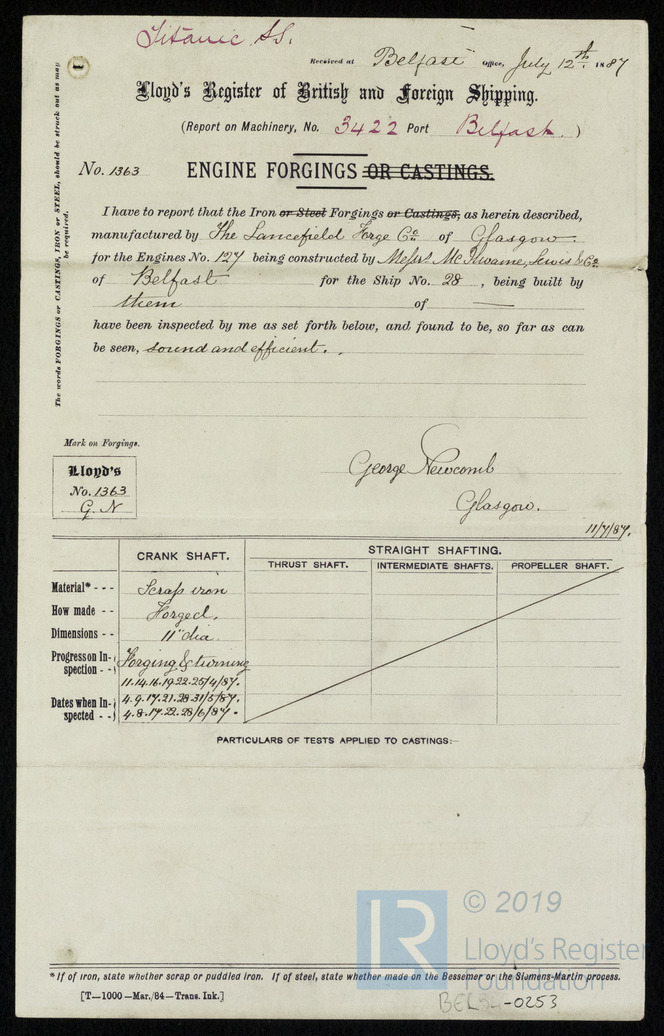 Titanic S.S.
Received at Belfast Office, July 12th. 1887
Lloyd's Register of British and Foreign Shipping.
(Report on Machinery, No. 3422 Port Belfast.)
No. 1363 ENGINE FORGINGS OR CASTINGS.
The words FORGINGS or CASTINGS, IRON or STEEL, should be struck out as may
be required.
1
I have to report that the Iron or Steel Forgings or Castings, as herein described,
manufactured by The Lancefield Forge Co. of Glasgow.
for the Engines No. 127 being constructed by Messrs McIlwaine, Lewis & Co.
of Belfast for the Ship No. 28, being built by
them of —
have been inspected by me as set forth below, and found to be, so far as can
be seen, sound and efficient.
Mark on Forgings.
Lloyd's
No. 1363
G. N
George Newcomb
Glasgow.
11/7/87.
CRANK SHAFT. STRAIGHT SHAFTING.
THRUST SHAFT. INTERMEDIATE SHAFTS. PROPELLER SHAFT.
Material* - - - Scrap iron
How made - - Forged,
Dimensions - - 11" dia.
Progress on In-
spection - - Forging & turning
Dates when In-
spected - -
11.14.16.19.22.25/4/87.
4.9.17.21.28.31/5/87.
4.8.17.22.28/6/87.
PARTICULARS OF TESTS APPLIED TO CASTINGS:—
© 2019
LR
Lloyd's Register
Foundation
*If of iron, state whether scrap or puddled iron. If of steel, state whether made on the Bessemer or the Siemens-Martin process.
[T—1000—Mar./84—Trans. Ink.]
BEL34-0253